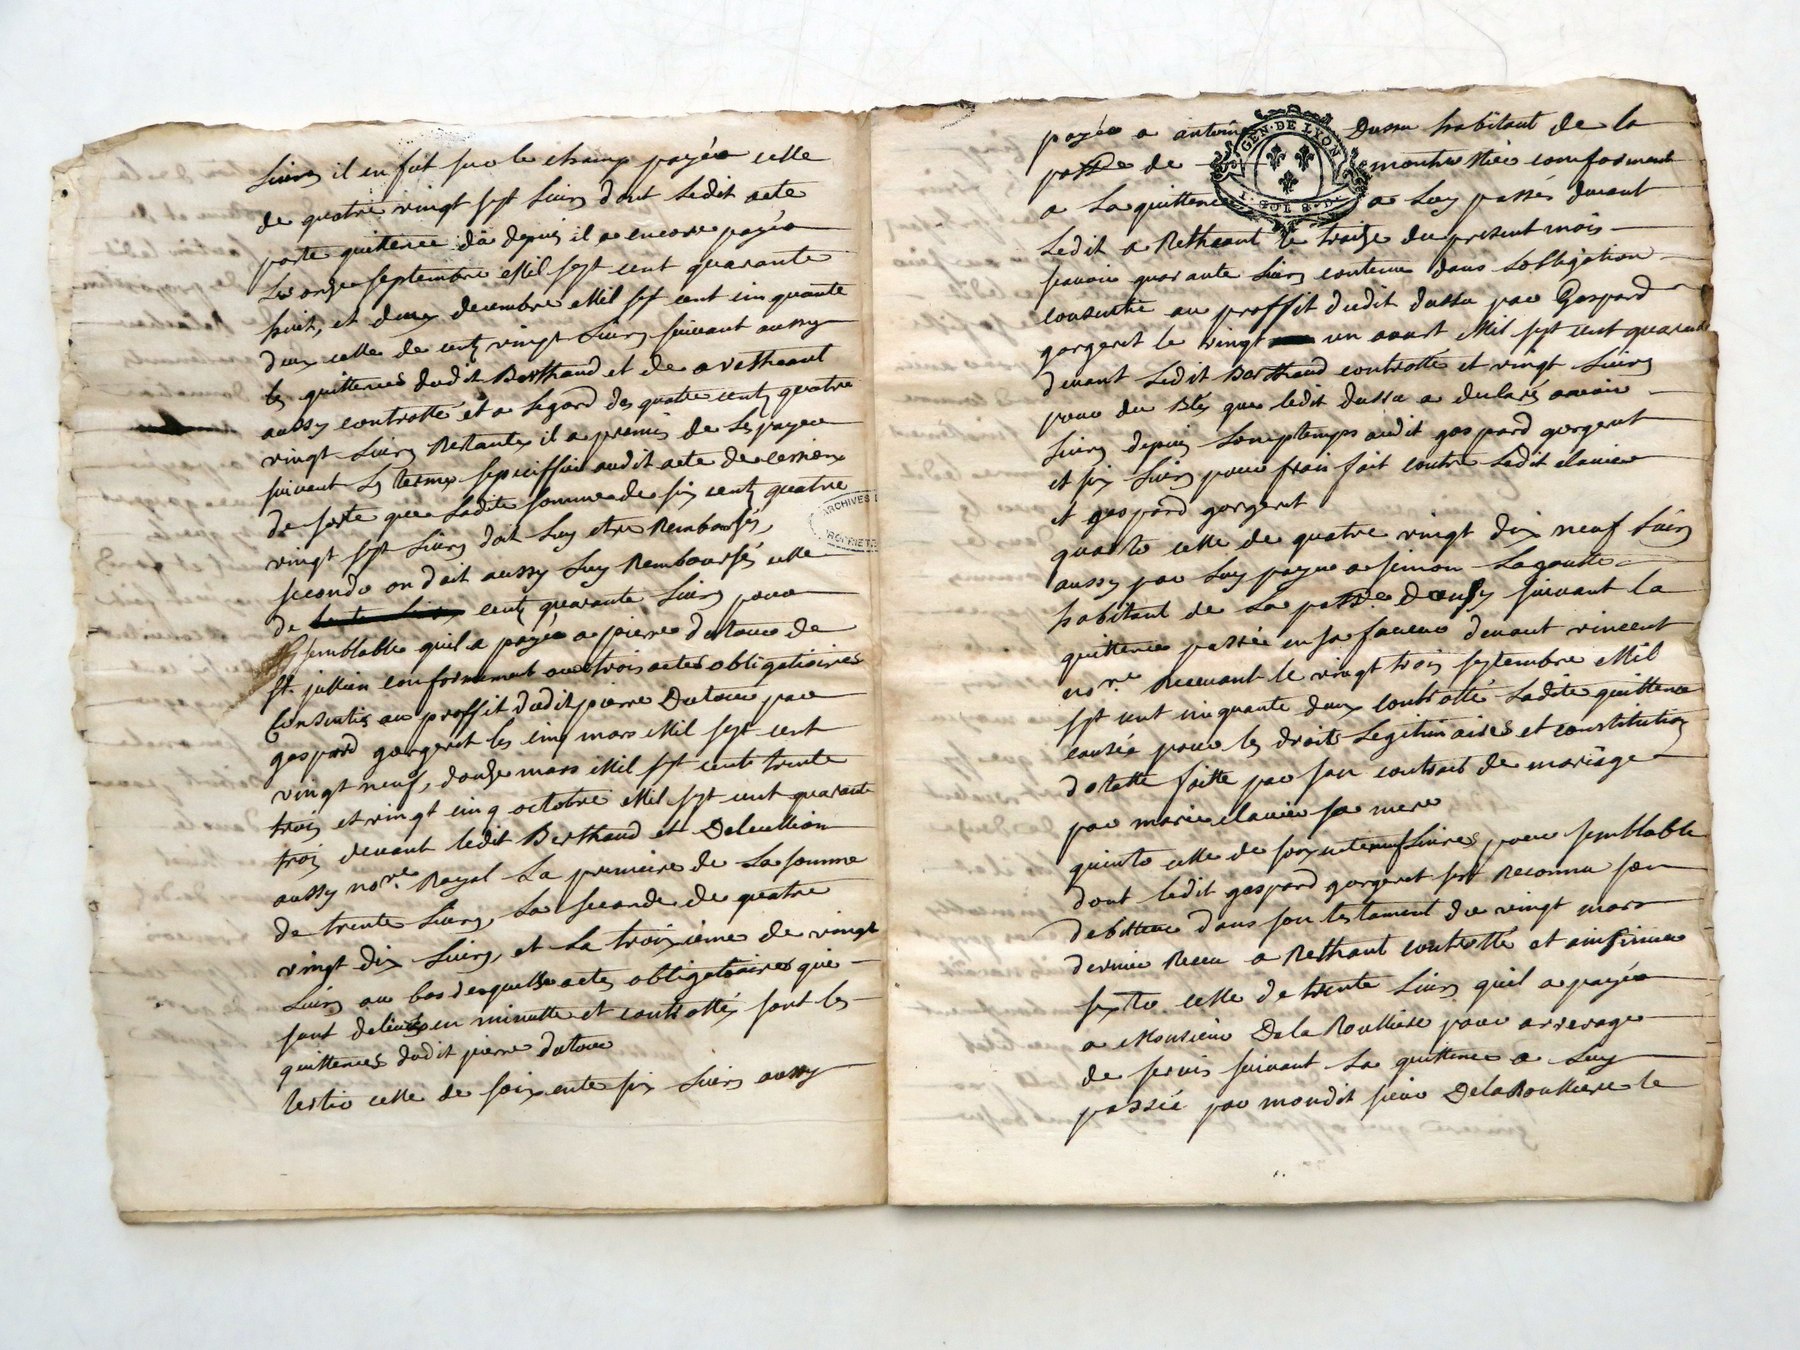 Livres il en fut sur le champ payée celle
de quatre vingt sept Livres dont Ledit acte
porte quittence dû depuis il a encore payée
Le onze septembre Mil sept cent quarante
huit, et deux decembre Mil sept cent cinquante
deux celle de cent vingt Livres suivant aussy
les quittences dudit Berthaud et de a rethaant
aussy controllé et a Legard des quatre cents quatre
vingt Livres Restantes il a promis de Les payer
suivant Les termes specciffiés audit acte de cession
de sorte que Ladite somme de six cents quatre
vingt sept Livres doit Luy etre Remboursés,
secondo on doit aussy Luy Remboursés celle
de cents quarante Livres pour
semblable quil a payée a pierre dutour de
st. jullien conformement aux trois actes obligatoires
Consentis au proffit dudit pierre Dutour par
gaspard gorgeret les cinq mars Mil sept cent
vingt neuf, douze mars Mil sept cent trente
trois et vingt cinq octobre Mil sept cent quarante
trois devant ledit Berthaud et Delcullion
aussy nore. Royal La premiere de La somme
de trente Livres, La seconde de quatre
vingt dix Livres, et La troisieme de vingt
Livres au bas desquelles actes obligatoires qui
sont deliurés en minutte et controllés sont les
quittences dudit pierre dutour
tertio celle de soixente six Livres aussy
payée a antoine Dussu habitant de la
passe de montrottier conforment
a La quittence a Luy passés devant
Ledit a Rethaant le traize du present mois
scavoir quarante Livres contenu dans Lobligation
consentie au proffit dudit dussu par Gaspard
gorgeret le vingt un aoust Mil sept cent quarante
devant Ledit Berthaud controllé et vingt Livres
pour du Bléz que ledit dussu a declarés avoir
Livrés depuis Longtemps audit gaspard gorgeret
et six Livres pour frais fait contre Ledit claude
et gaspard gorgeret
quarto celle de quatre vingt dix neuf Livres
aussy par Luy payée a simon Lagoutte
habitant de La passe suivant la
quittence passée en sa faveur devant vincent
nore. Recevant le vingt trois septembre Mil
sept cent cinquante deux controllé Ladite quittence
causée pour les droits Legitimaires et constitution
dotalle faitte par son contrait de mariage
par marie claude sa mere
quinto celle de soixente neuf Livres pour semblable
dont ledit gaspard gorgeret sest Reconnu son
debitteur dans son testament du vingt mars
dernier Receu a Rethaant controllé et insinué
sexto celle de trente Livres quil a payée
a Monsieur De la Roulliere pour arrerage
de servis suivant La quittence a Luy
passée par mondit sieur De la Roulliere le
GEN. DE LYON
ARCHIVES